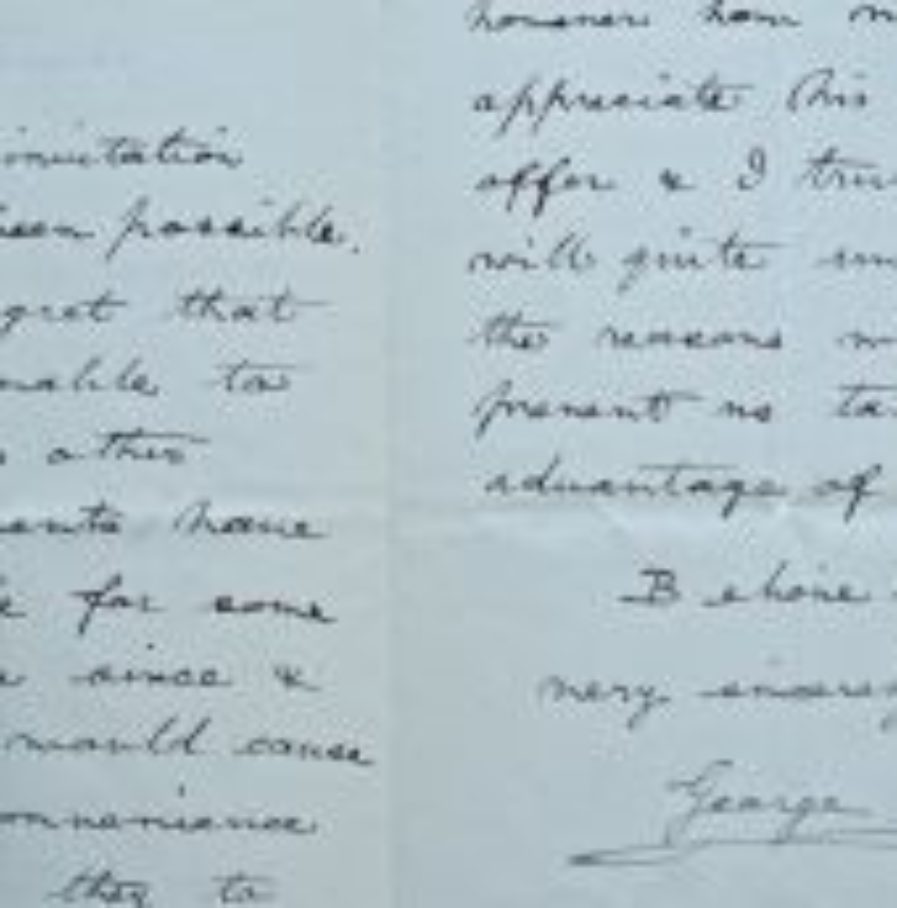 invitation
been possible.
gret that
nable to
other
ents have
for some
since &
would cause
onvenience
they to
however how m
appreciate this
offer & I trus
will quite un
the reasons
present us ta
advantage of
Believe
very sincerey
George